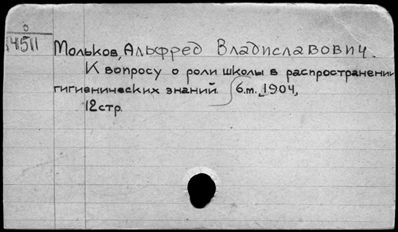 0
14511 Мольков, Альфред Владиславович.
К вопросу о роли школы в распространении
гигиенических знаний. б.m. 1904,
12 стр.